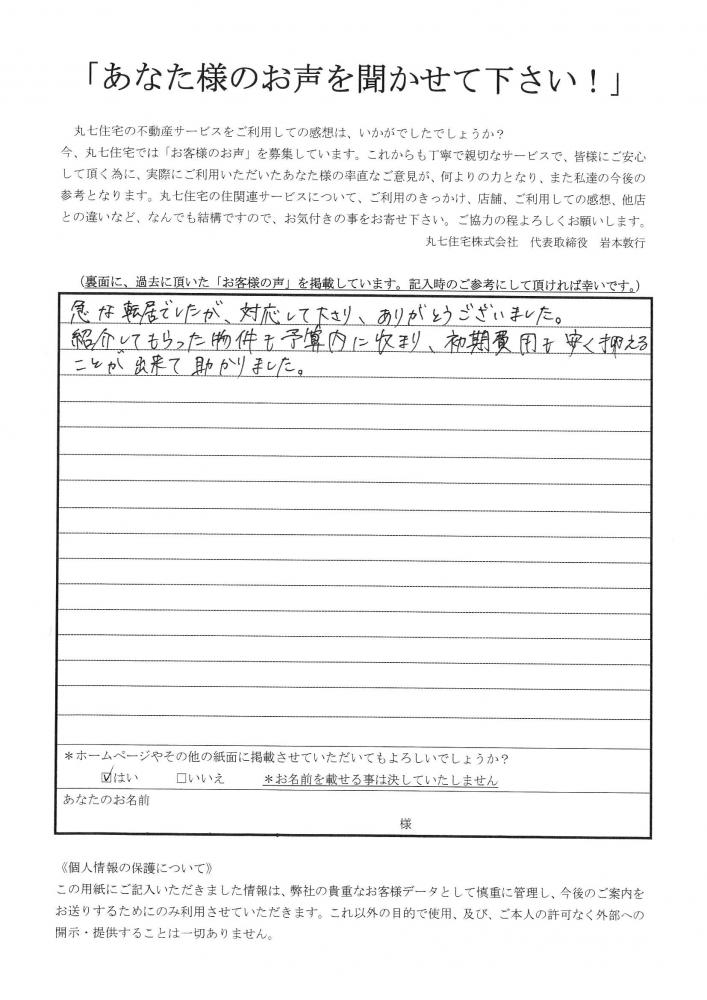 「あなた様のお声を聞かせて下さい！」
丸七住宅の不動産サービスをご利用しての感想は、いかがでしたでしょうか？
今、丸七住宅では「お客様のお声」を募集しています。これからも丁寧で親切なサービスで、皆様にご安心
して頂く為に、実際にご利用いただいたあなた様の率直なご意見が、何よりの力となり、また私達の今後の
参考となります。丸七住宅の住関連サービスについて、ご利用のきっかけ、店舗、ご利用しての感想、他店
との違いなど、なんでも結構ですので、お気付きの事をお寄せ下さい。ご協力の程よろしくお願いします。
丸七住宅株式会社　代表取締役　岩本敦行
（裏面に、過去に頂いた「お客様の声」を掲載しています。記入時のご参考にして頂ければ幸いです。）
急な転居でしたが、対応して下さり、ありがとうございました。
紹介してもらった物件も予算内に収まり、初期費用も安く抑える
ことが出来て助かりました。
＊ホームページやその他の紙面に掲載させていただいてもよろしいでしょうか？
☑はい　□いいえ　＊お名前を載せる事は決していたしません
あなたのお名前
様
《個人情報の保護について》
この用紙にご記入いただきました情報は、弊社の貴重なお客様データとして慎重に管理し、今後のご案内を
お送りするためにのみ利用させていただきます。これ以外の目的で使用、及び、ご本人の許可なく外部への
開示・提供することは一切ありません。